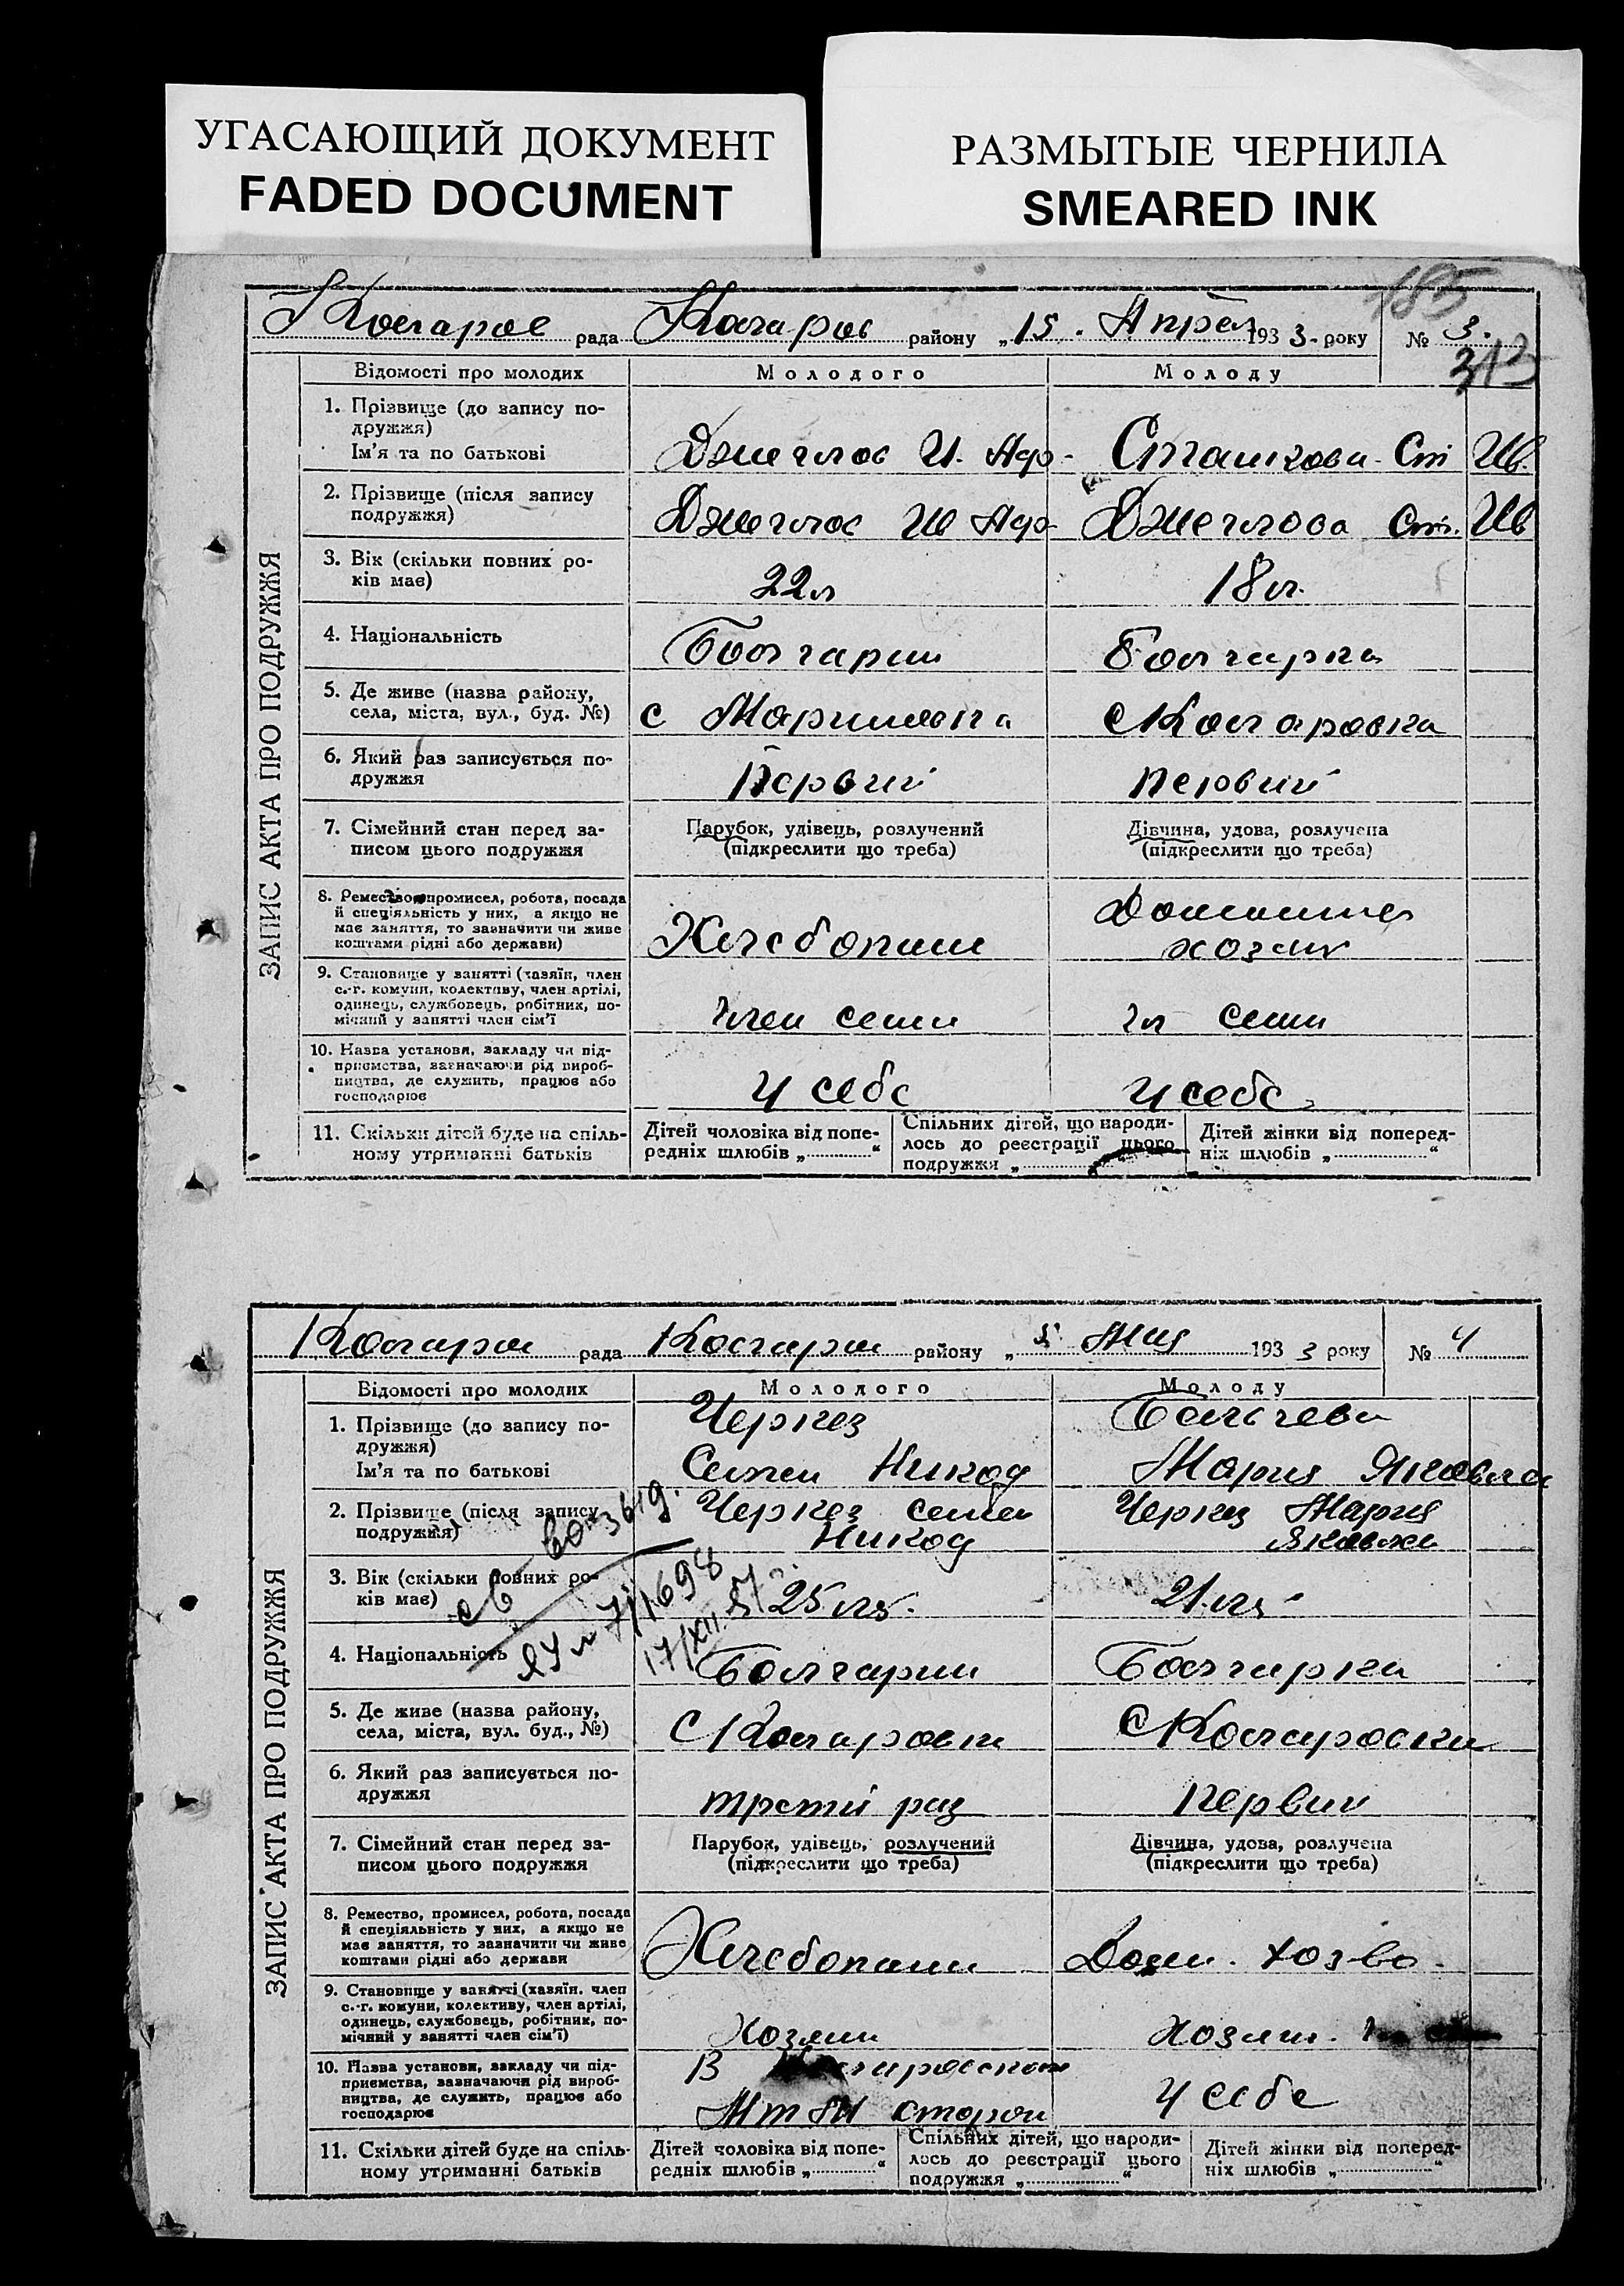 УГАСАЮЩИЙ ДОКУМЕНТ
FADED DOCUMENT
РАЗМЫТЫЕ ЧЕРНИЛА
SMEARED INK
185
рада района району „15. Апрел 1933. року № 3.
313
ЗАПИС АКТА ПРО ПОДРУЖЖЯ
Відомості про молодих Молодого Молоду
1. Прізвище (до запису по-
дружжя)
Ім'я та по батькові
Сташкова Ст Ив.
2. Прізвище (після запису
подружжя)
Ив
3. Вік (скільки повних ро-
ків має)
22л 18л.
4. Національність
Болгарин Болгарка
5. Де живе (назва району,
села, міста, вул., буд. №)
с Мариновка с Коларовка
6. Який раз записується по-
дружжя
Первий первий
7. Сімейний стан перед за-
писом цього подружжя
Парубок, удівець, розлучений
(підкреслити що треба)
Дівчина, удова, розлучена
(підкреслити що треба)
8. Ремество, промисел, робота, посада
й спеціяльність у них, а якщо не
має заняття, то зазначити чи живе
коштами рідні або держави)
Хлебопаш
хозяк
9. Становище у занятті (хазяїн, член
с.-г. комуни, колективу, член артілі,
одинець, службовець, робітник, по-
мічний у занятті член сім'ї
член семи чл семи
10. Назва установи, закладу чи під-
приємства, зазначаючи рід вироб-
ництва, де служить, працює або
господарює
у себе у себе
11. Скільки дітей буде на спіль-
ному утриманні батьків
Дітей чоловіка від попе-
редніх шлюбів „ “
Спільних дітей, що народи-
лось до реєстрації цього
подружжя „
Дітей жінки від поперед-
ніх шлюбів „ “
Коларов рада Коларов району „5 Мая 1933 року № 4
ЗАПИС АКТА ПРО ПОДРУЖЖЯ
Відомості про молодих Молодого Молоду
1. Прізвище (до запису по-
дружжя)
Ім'я та по батькові
Черкез
Семен Никод
Бальчева
Мария Яковла
2. Прізвище (після запису
подружжя)
Черкез семен
Никод
Черкез Мария
Яковл
св возв выд.
ЯУ № 711698
17/XII 57
3. Вік (скільки повних ро-
ків має)
25 21
4. Національність
Болгарин Болгарка
5. Де живе (назва району,
села, міста, вул. буд., №)
с Коларовки с Коларовки
6. Який раз записується по-
дружжя
третий раз первий
7. Сімейний стан перед за-
писом цього подружжя
Парубок, удівець, розлучений
(підкреслити що треба)
Дівчина, удова, розлучена
(підкреслити що треба)
8. Ремество, промисел, робота, посада
й спеціяльність у них, а якщо не
має заняття, то зазначити чи живе
коштами рідні або держави
Хлебопаш Дом. хоз-во.
9. Становище у занятті (хазяїн, член
с.-г. комуни, колективу, член артілі,
одинець, службовець, робітник, по-
мічний у занятті член сім'ї)
Хозяин Хозяин.
10. Назва установи, закладу чи під-
приємства, зазначаючи рід вироб-
ництва, де служить, працює або
господарює
В
сторож
у себе
11. Скільки дітей буде на спіль-
ному утриманні батьків
Дітей чоловіка від попе-
редніх шлюбів „ “
Спільних дітей, що народи-
лось до реєстрації цього
подружжя „ “
Дітей жінки від поперед-
ніх шлюбів „ “